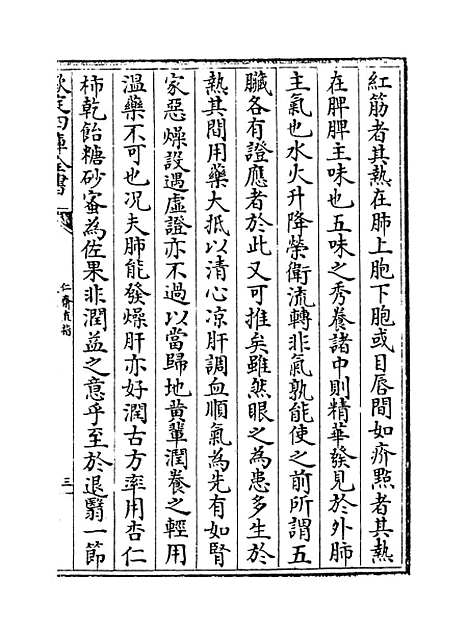 紅筋者其熱在肺上胞下胞或目唇間如疥㸃者其熱
在脾脾主味也五味之秀養諸中則精華發見於外肺
主氣也水火升降榮衛流轉非氣孰能使之前所謂五
臟各有證應者於此又可推矣雖然眼之為患多生於
熱其間用藥大抵以清心凉肝調血順氣為先有如腎
家惡燥設遇虛證亦不過以當歸地黄輩潤養之輕用
温藥不可也况夫肺能發燥肝亦好潤古方率用杏仁
柿乾飴糖砂蜜為佐果非潤益之意乎至於退翳一節
欽定四庫全書
仁齋直指
三